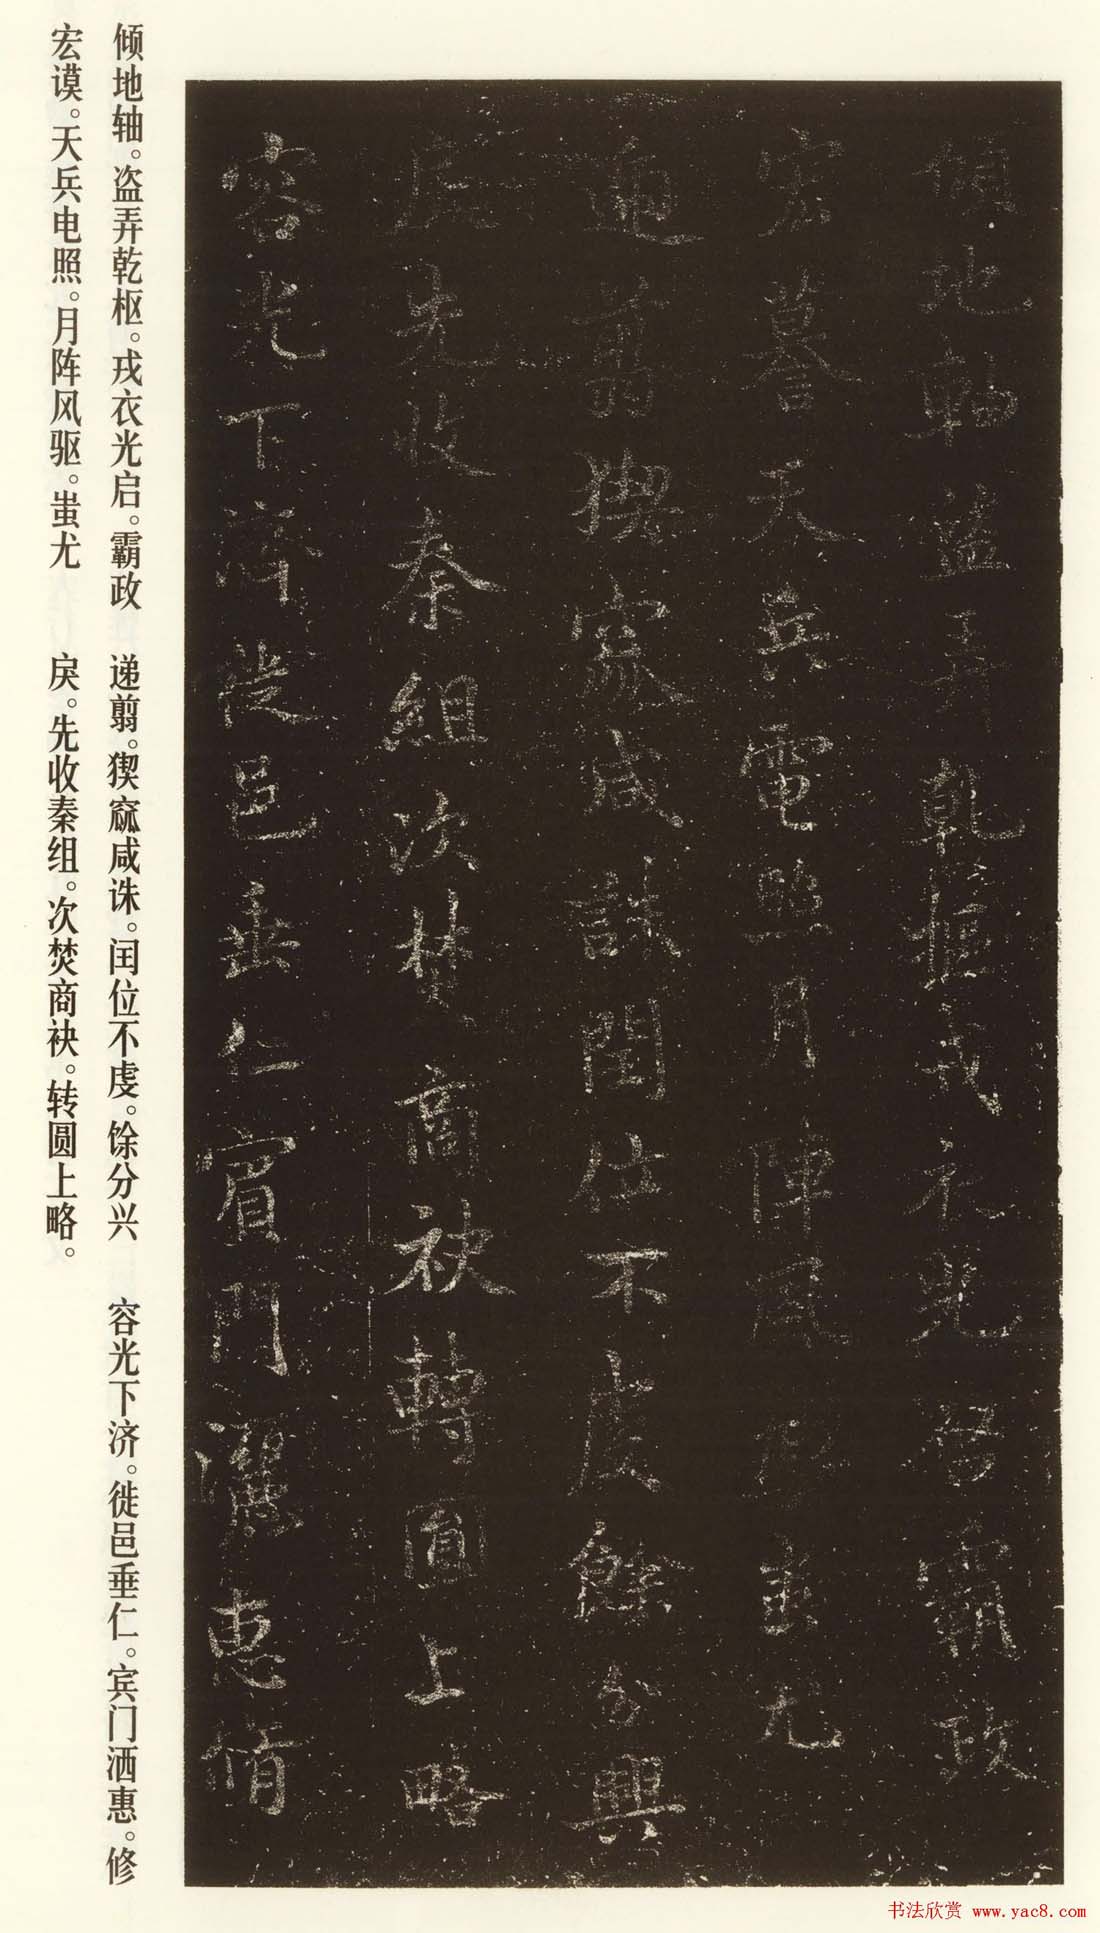 倾地轴。盗弄乾枢。戎衣光启。霸政
宏谟。天兵电照。月阵风驱。蚩尤
递翦。猰窳咸诛。闰位不虔。馀分兴
戾。先收秦组。次焚商袂。转圆上略。
容光下济。徙邑垂仁。宾门洒惠。修
傾地軸盜弄乾樞戎衣光啓霸政
宏謩天兵電照月陣風驅蚩尤
遞翦猰窳咸誅閏位不虔餘分興
戾先收秦組次焚商袂轉圓上略
容光下濟徙邑垂仁賓門灑惠脩
书法欣赏 www.yac8.com